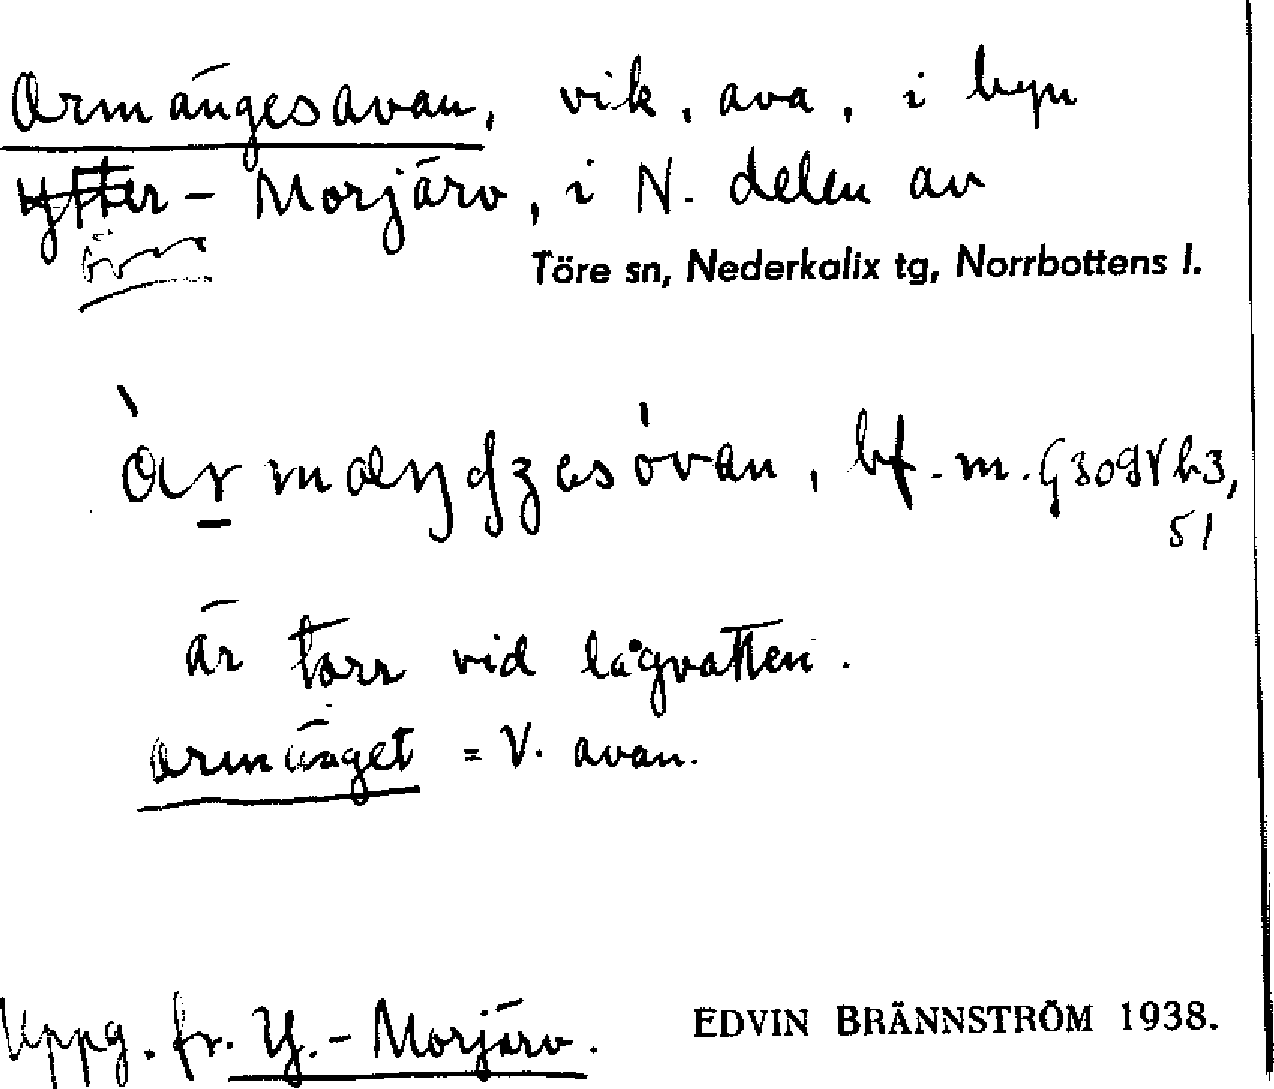 Ormängesavan, vik, ava, i byn
Ytter-Morjärv, i N. delen av
Över
Töre sn, Nederkalix tg, Norrbottens l.
bf. m.
51
är torr vid lågvatten.
Ormänget = V. avan.
Uppg. fr. Y.-Morjärv.
EDVIN BRÄNNSTRÖM 1938.